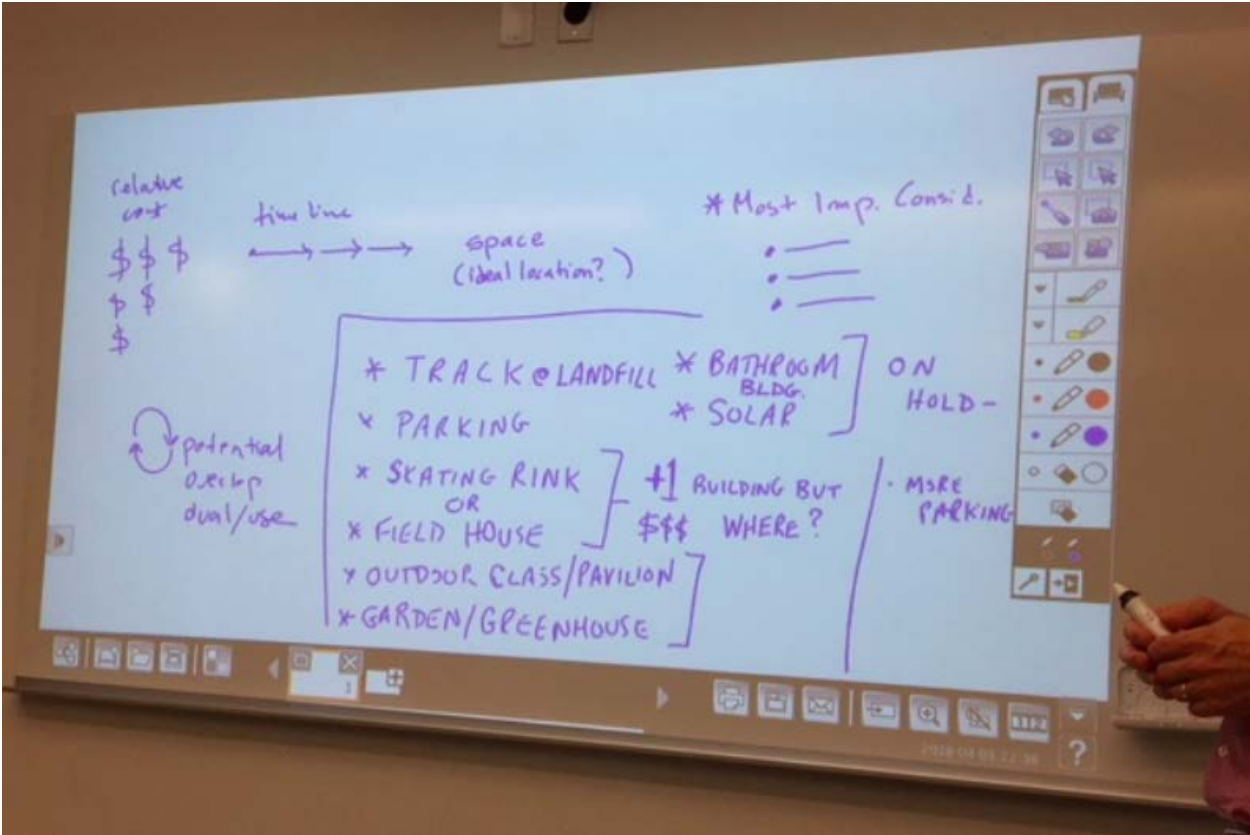 relative
cost
$ $ $
$ $
$
time line
space
(ideal location?)
* Most Imp. Consid.
potential
overlap
dual/use
* TRACK @ LANDFILL
* PARKING
* SKATING RINK
OR
* FIELD HOUSE
* OUTDOOR CLASS/PAVILION
* GARDEN/GREENHOUSE
* BATHROOM
BLDG.
* SOLAR
ON
HOLD -
+1 BUILDING BUT
$$$ WHERE?
· MORE
PARKING
1
?